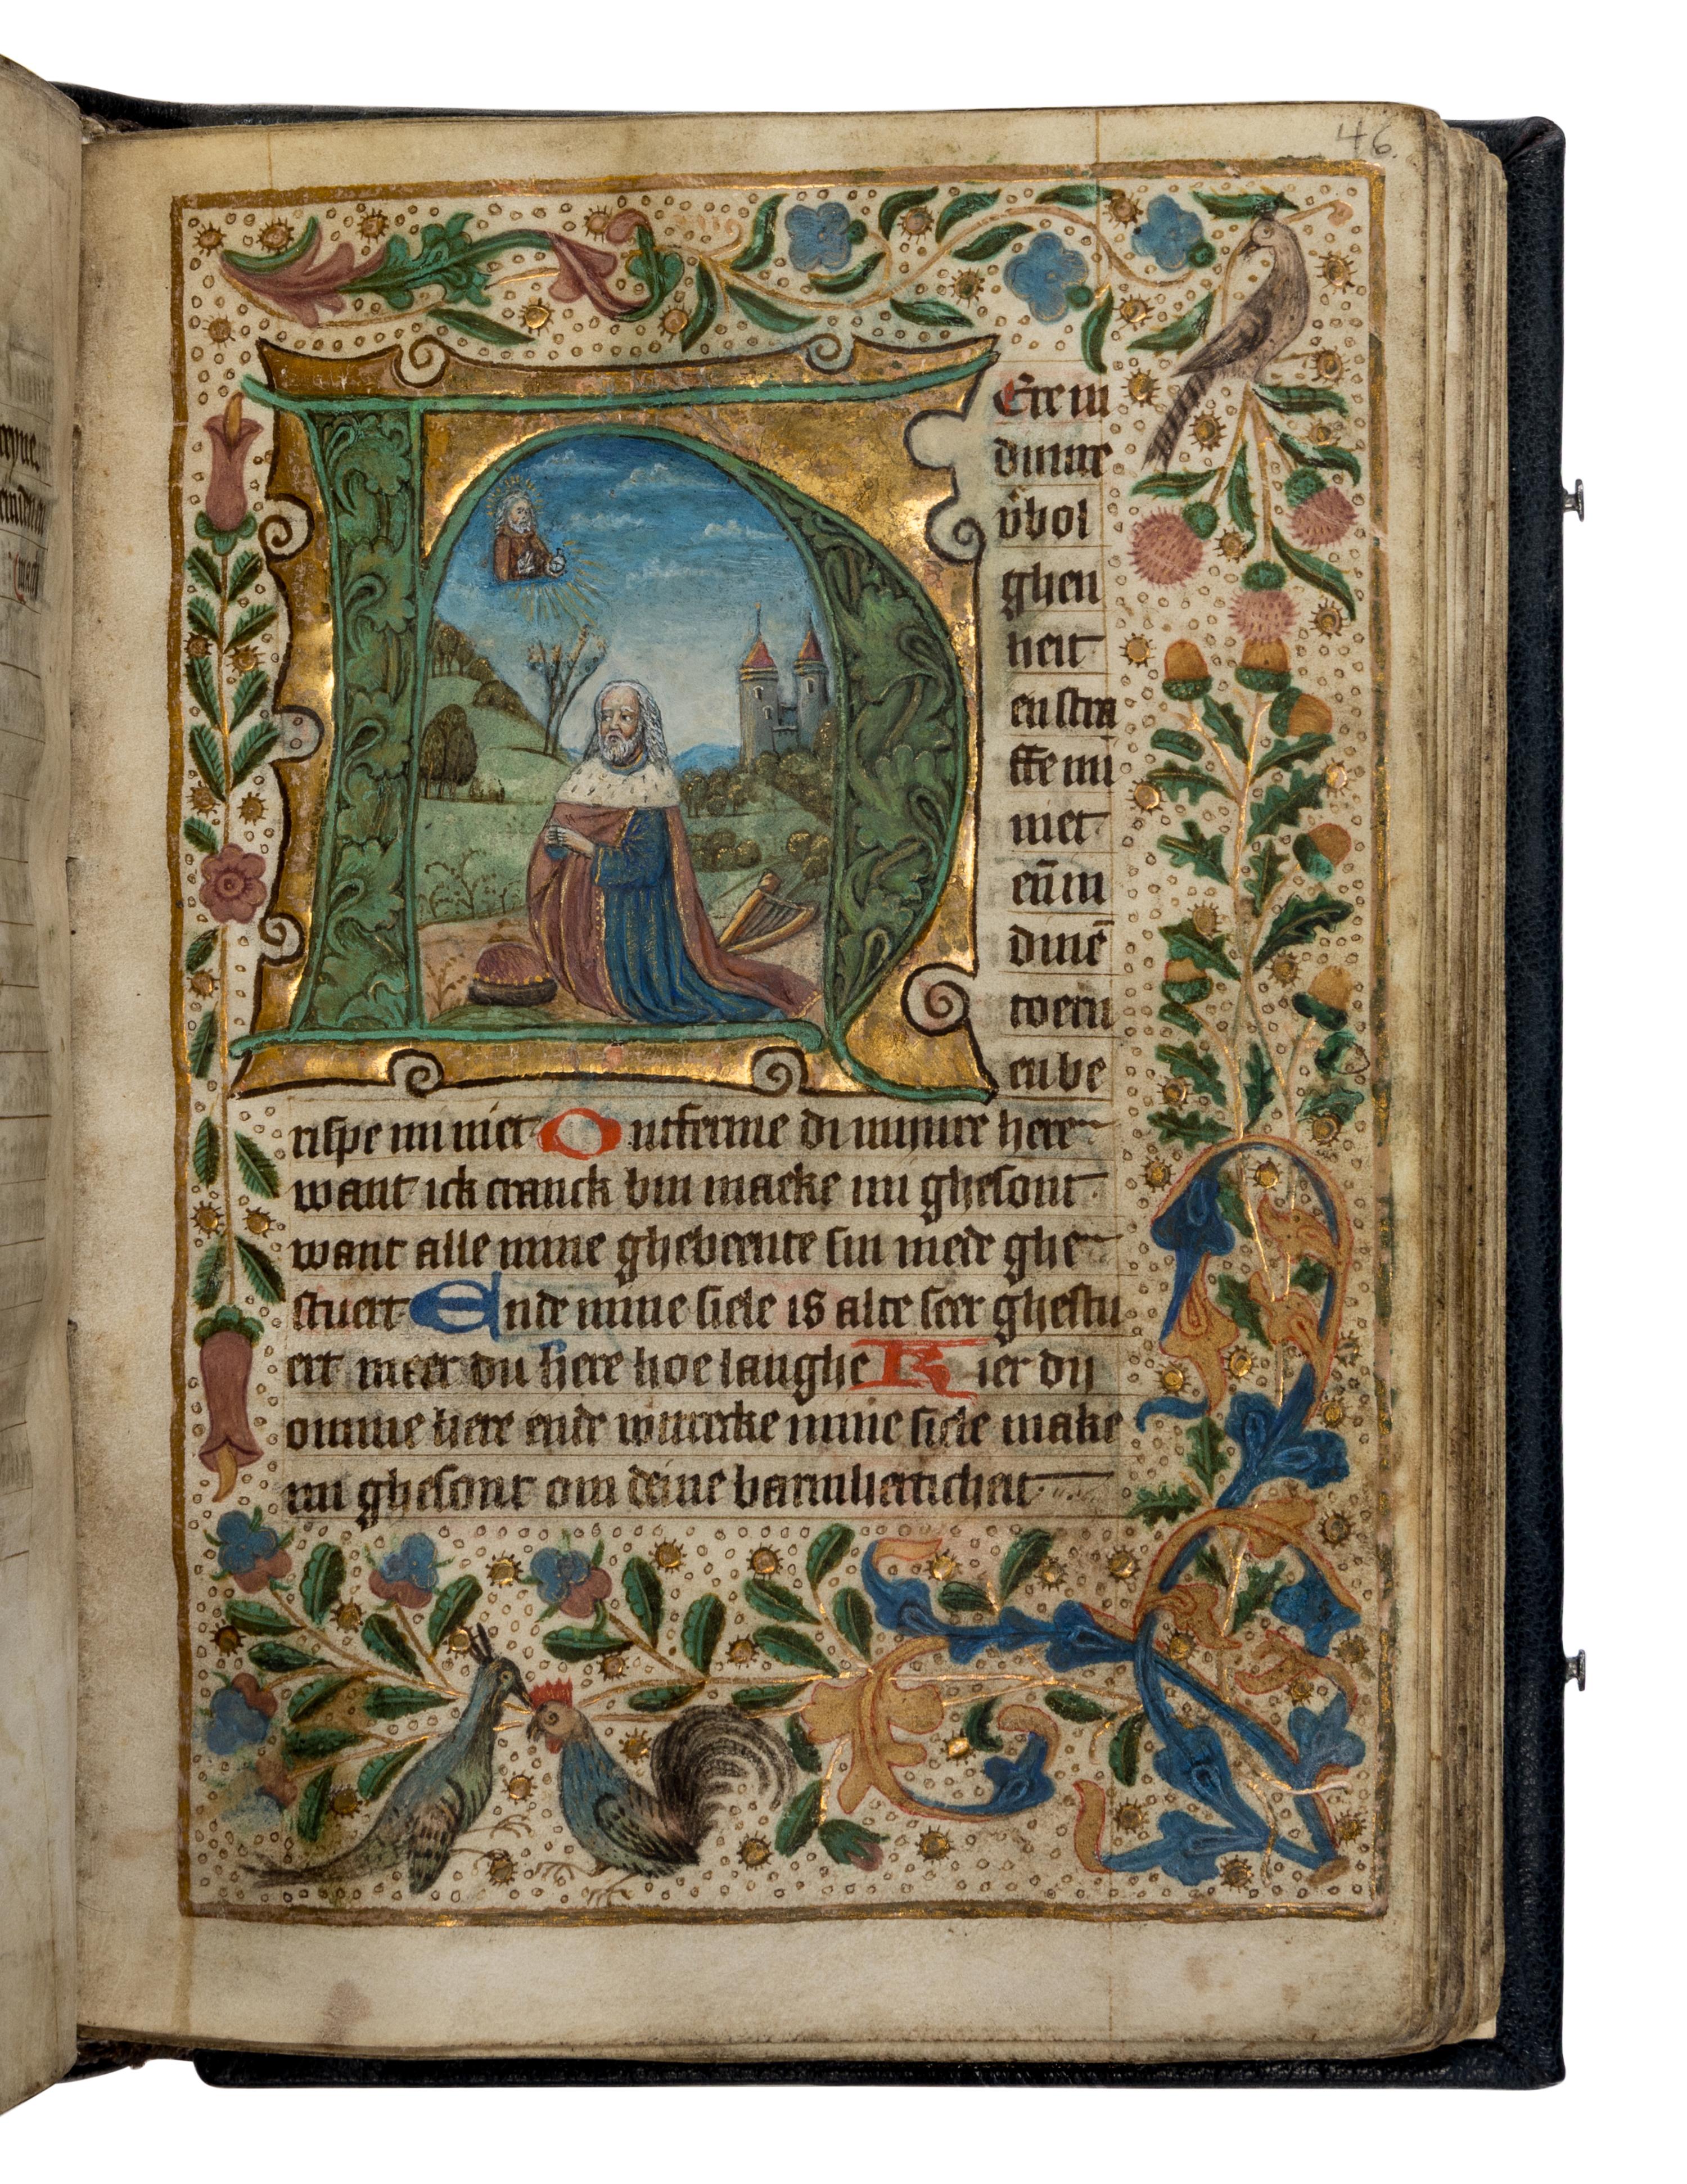 46.
HEre in
dinre
v̄bol
ghen
heit
en stra
ffe mi
niet
en̄ in
dinē
toern
en be
rispe mi niet Ontferme di mijnre here
want ick cranck bin maeke mi ghesont
want alle mine ghebeente sin mede ghe
stuert Ende mine siele is alte seer ghestu
ert meer du here hoe langhe Kier dij
omme here ende mine siele make
mi ghesont om deine barmherticheit